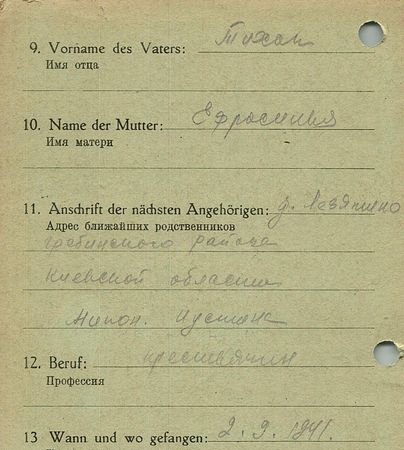 9. Vorname des Vaters: Тихон
Имя отца
10. Name der Mutter: Ефросинья
Имя матери
11. Anschrift der nächsten Angehörigen: д.
Адрес ближайших родственников
района
Киевской области
12. Beruf: крестьянин
Профессия
13 Wann und wo gefangen: 2. 9. 1941.